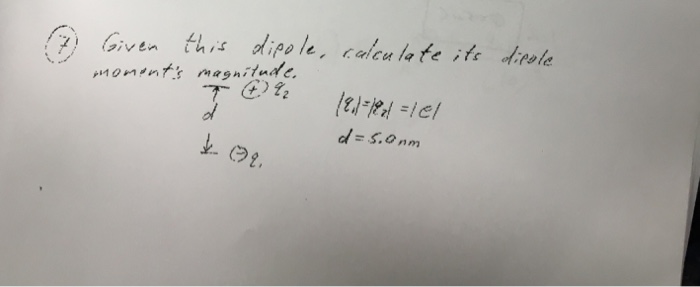 (7) Given this dipole, calculate its dipole
moment's magnitude.
(+) q₂
|q₁|=|q₂|=|e|
d
d = 5.0 nm
(-) q₁